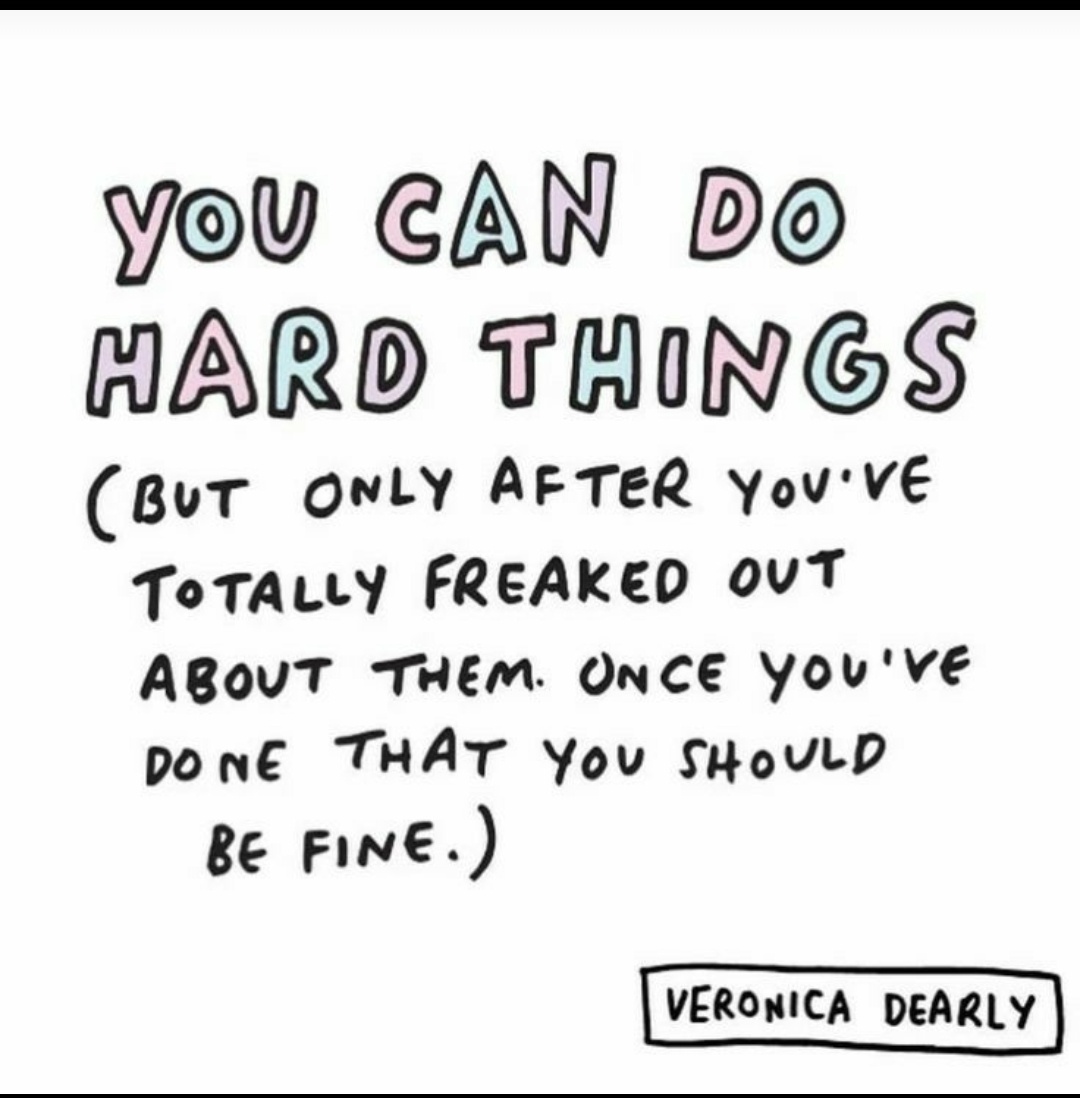 YOU CAN DO
HARD THINGS
(BUT ONLY AFTER YOU'VE
TOTALLY FREAKED OUT
ABOUT THEM. ONCE YOU'VE
DONE THAT YOU SHOULD
BE FINE.)
VERONICA DEARLY